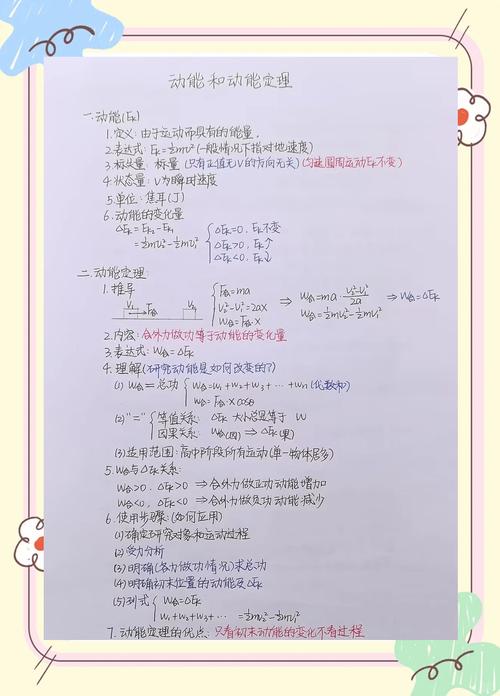 动能和动能定理
一.动能(Ek)
1.定义:由于运动而具有的能量。
2.表达式:Ek=½mv²(一般情况下指对地速度)
3.标矢量:标量(只有正值无V的方向无关)(匀速圆周运动Ek不变)
4.状态量:V为瞬时速度
5.单位:焦耳(J)
6.动能的变化量
ΔEk=Ek₂-Ek₁
=½mv₂²-½mv₁²
ΔEk=0,Ek不变
ΔEk>0,Ek↑
ΔEk<0,Ek↓
二.动能定理:
1.推导
F合
F合=ma
V₂²-V₁²=2ax
W合=F合·x
⇒ W合=ma·(V₂²-V₁²)/2a
W合=½mv₂²-½mv₁²
⇒W合=ΔEk
2.内容:合外力做功等于动能的变化量
3.表达式:W合=ΔEk
4.理解(研究动能是如何改变的?)
(1) W合=总功
W合=W₁+W₂+W₃+…+Wn(代数和)
W合=F合·xcosθ
(2)"="
等值关系:ΔEk大小总是等于W
因果关系:W合(因)⇒ΔEk(果)
(3)适用范围:高中阶段所有运动(单一物体居多)
5.W合与ΔEk关系:
W合>0,ΔEk>0⇒合外力做正功动能增加
W合<0,ΔEk<0⇒合外力做负功动能减少
6.使用步骤:(如何应用)
(1)确定研究对象和运动过程
(2)受力分析
(3)明确(各力做功情况)求总功
(4)明确初末位置的动能及ΔEk
(5)列式
W合=ΔEk
W₁+W₂+W₃+…=½mv₂²-½mv₁²
7.动能定理的优点:只看初末动能的变化不看过程